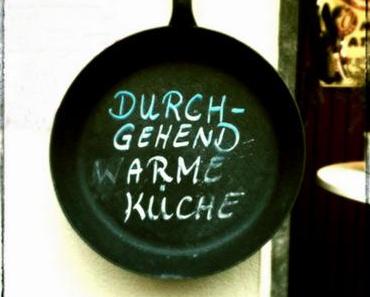 DURCH-
GEHEND
WARME
KÜCHE